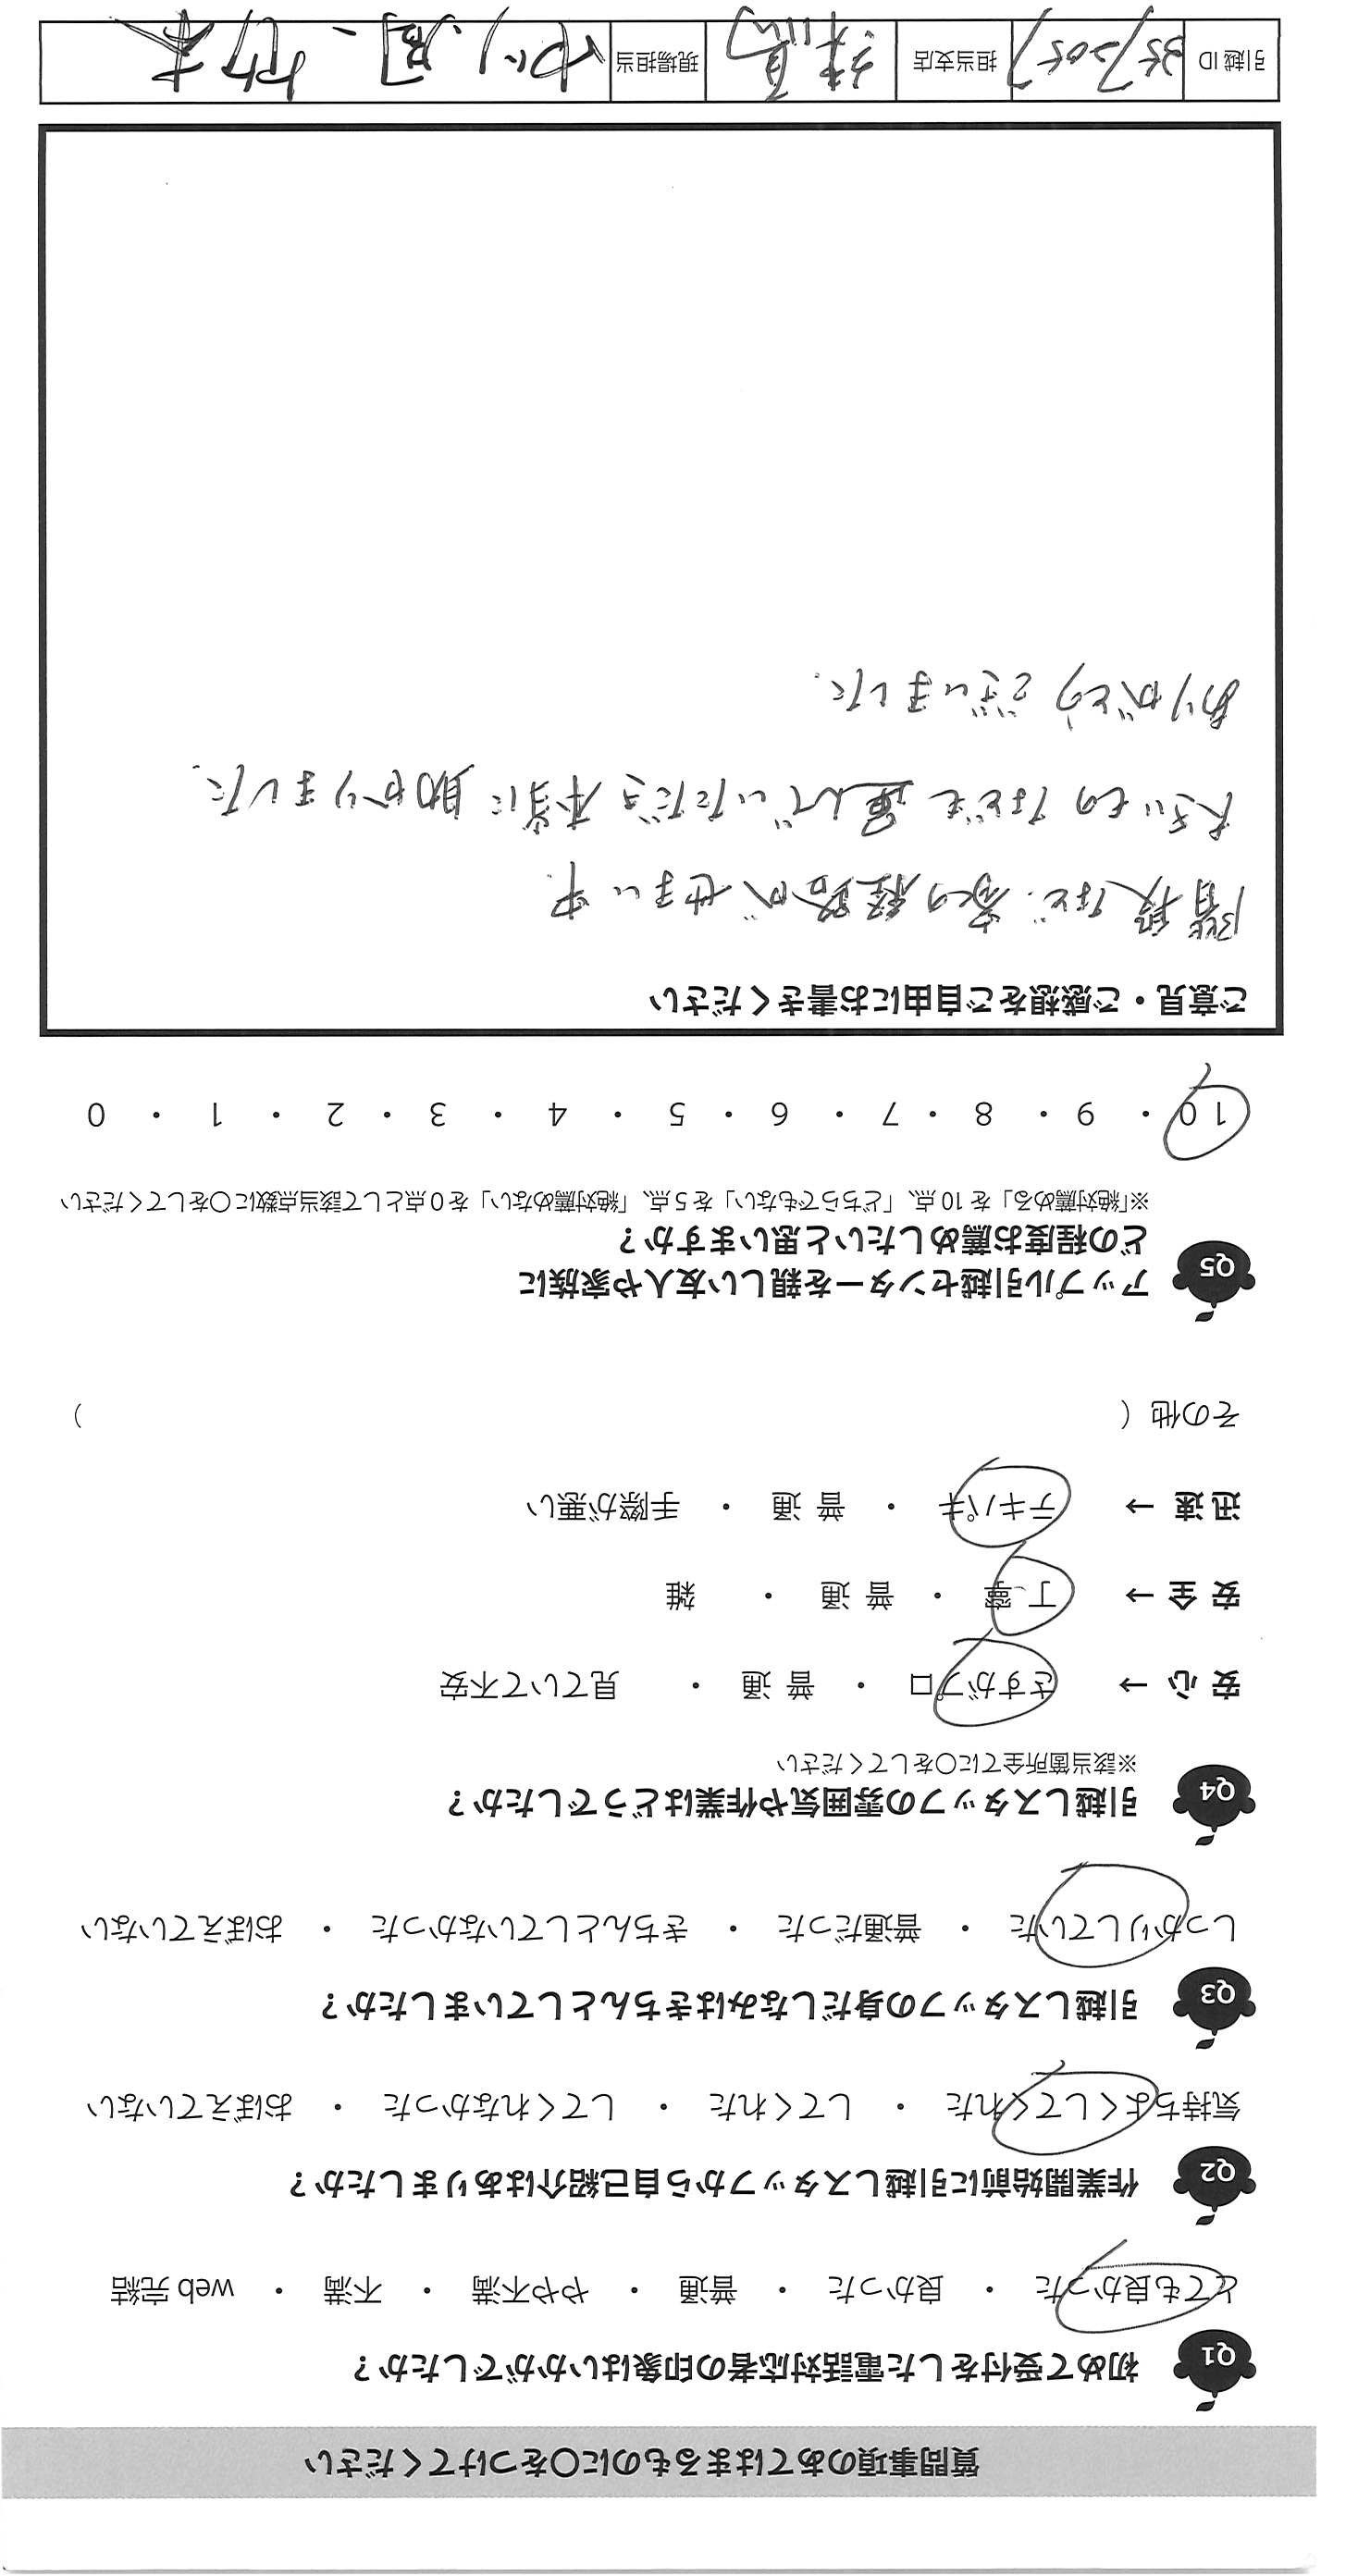 質問事項のあてはまるものに〇をつけてください
Q1 初めて受付をした電話対応者の印象はいかがでしたか？
とても良かった ・ 良かった ・ 普通 ・ やや不満 ・ 不満 ・ web 完結
Q2 作業開始前に引越しスタッフから自己紹介はありましたか？
気持ちよくしてくれた ・ してくれた ・ してくれなかった ・ おぼえていない
Q3 引越しスタッフの身だしなみはきちんとしていましたか？
しっかりしていた ・ 普通だった ・ きちんとしていなかった ・ おぼえていない
Q4 引越しスタッフの雰囲気や作業はどうでしたか？
※該当箇所全てに〇をしてください
安 心 → さすがプロ ・ 普 通 ・ 見ていて不安
安 全 → 丁 寧 ・ 普 通 ・ 雑
迅 速 → テキパキ ・ 普 通 ・ 手際が悪い
その他（ ）
Q5 アップル引越センターを親しい友人や家族に
どの程度お薦めしたいと思いますか？
※「絶対薦める」を 10 点、「どちらでもない」を 5 点、「絶対薦めない」を 0 点として該当点数に〇をしてください
10 ・ 9 ・ 8 ・ 7 ・ 6 ・ 5 ・ 4 ・ 3 ・ 2 ・ 1 ・ 0
ご意見・ご感想をご自由にお書きください
階段など、家の経路がせまい中
大きいものなども運んでいただき本当に助かりました。
ありがとうございました。
引越 ID 3572057 担当支店 練馬 現場担当